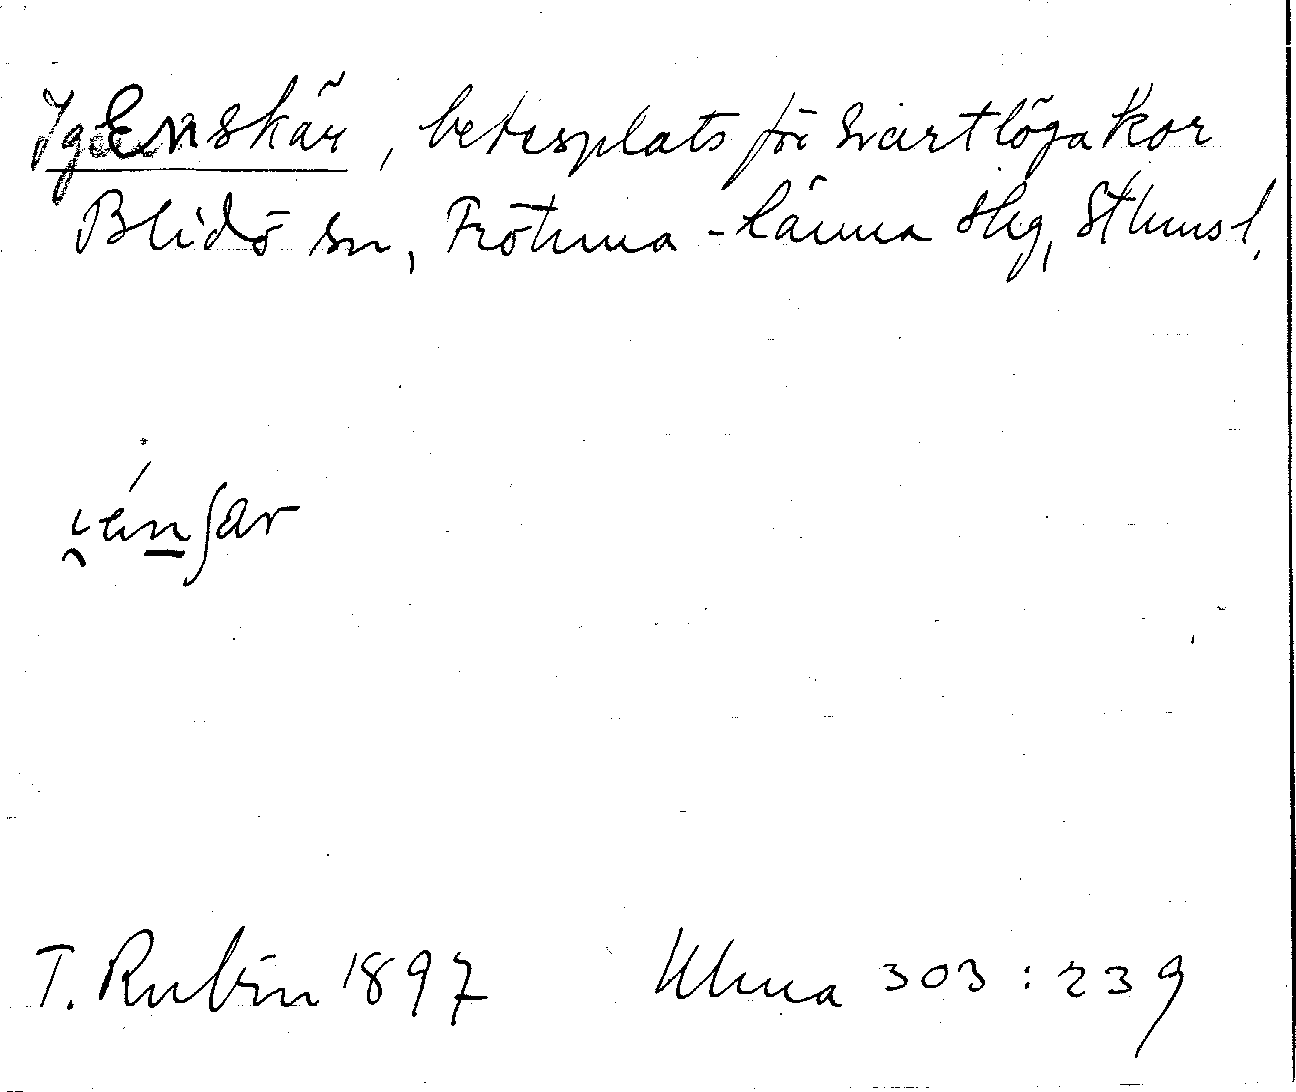 Enskär, betesplats för Svartlöga kor
Blidö sn, Frötuna-Länna slg, Sthms l.
T. Rubin 1897 Uluna 303:239